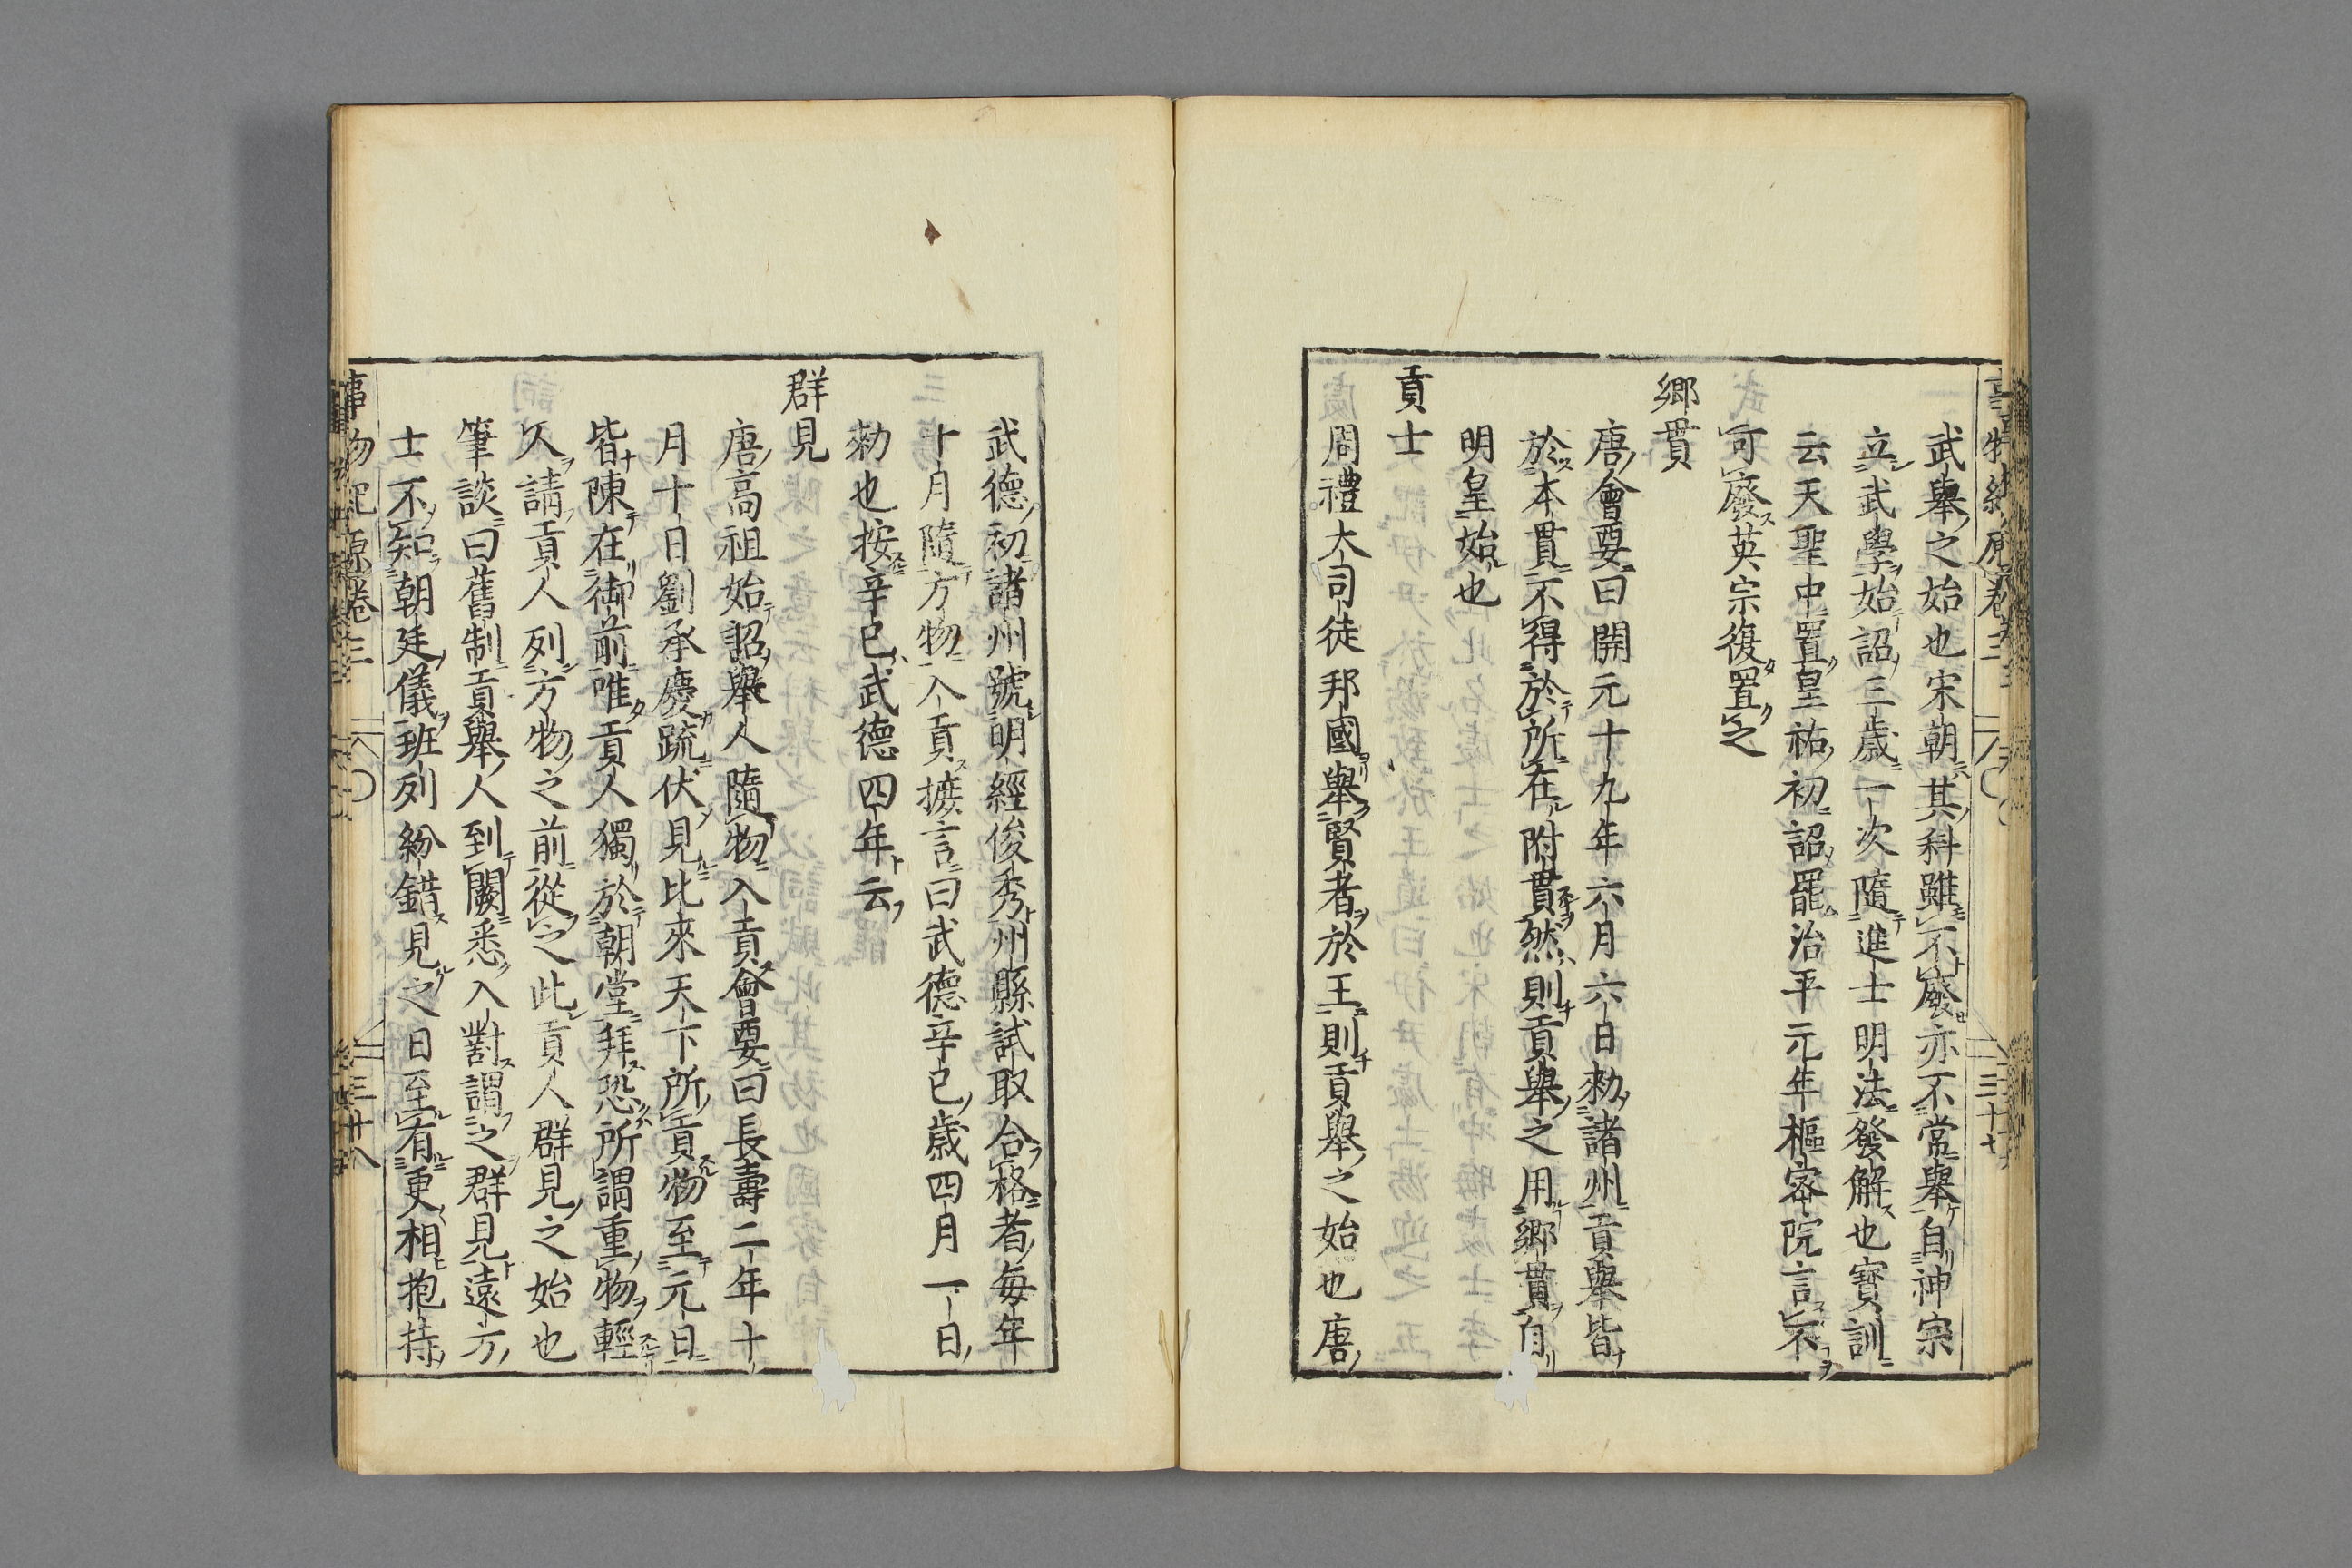 武舉之始也宋朝其科雖不廢亦不常舉自神宗
立武學始詔三歲一次隨進士明法發解也寳訓
云天聖中置皇祐初詔罷治平元年樞密院言不
可廢英宗復置之
鄉貫
唐會要曰開元十九年六月六日勑諸州貢舉皆
於本貫不得於所在附貫然則貢舉之用鄉貫自
明皇始也
貢士
周禮大司徒邦國舉賢者於王則貢舉之始也唐
武德初諸州號明經俊秀州縣試取合格者每年
十月隨方物入貢摭言曰武德辛巳歲四月一日
勑也按辛巳武德四年云
群見
唐高祖始詔舉人隨物入貢會要曰長壽二年十
月十日劉承慶疏伏見比來天下所貢物至元日
皆陳在御前唯貢人獨於朝堂拜恐所謂重物輕
人請貢人列方物之前從之此貢人群見之始也
筆談曰舊制貢舉人到闕悉入對謂之群見遠方
士不知朝廷儀班列紛錯見之日至有更相抱持
事物紀原卷三 三十八